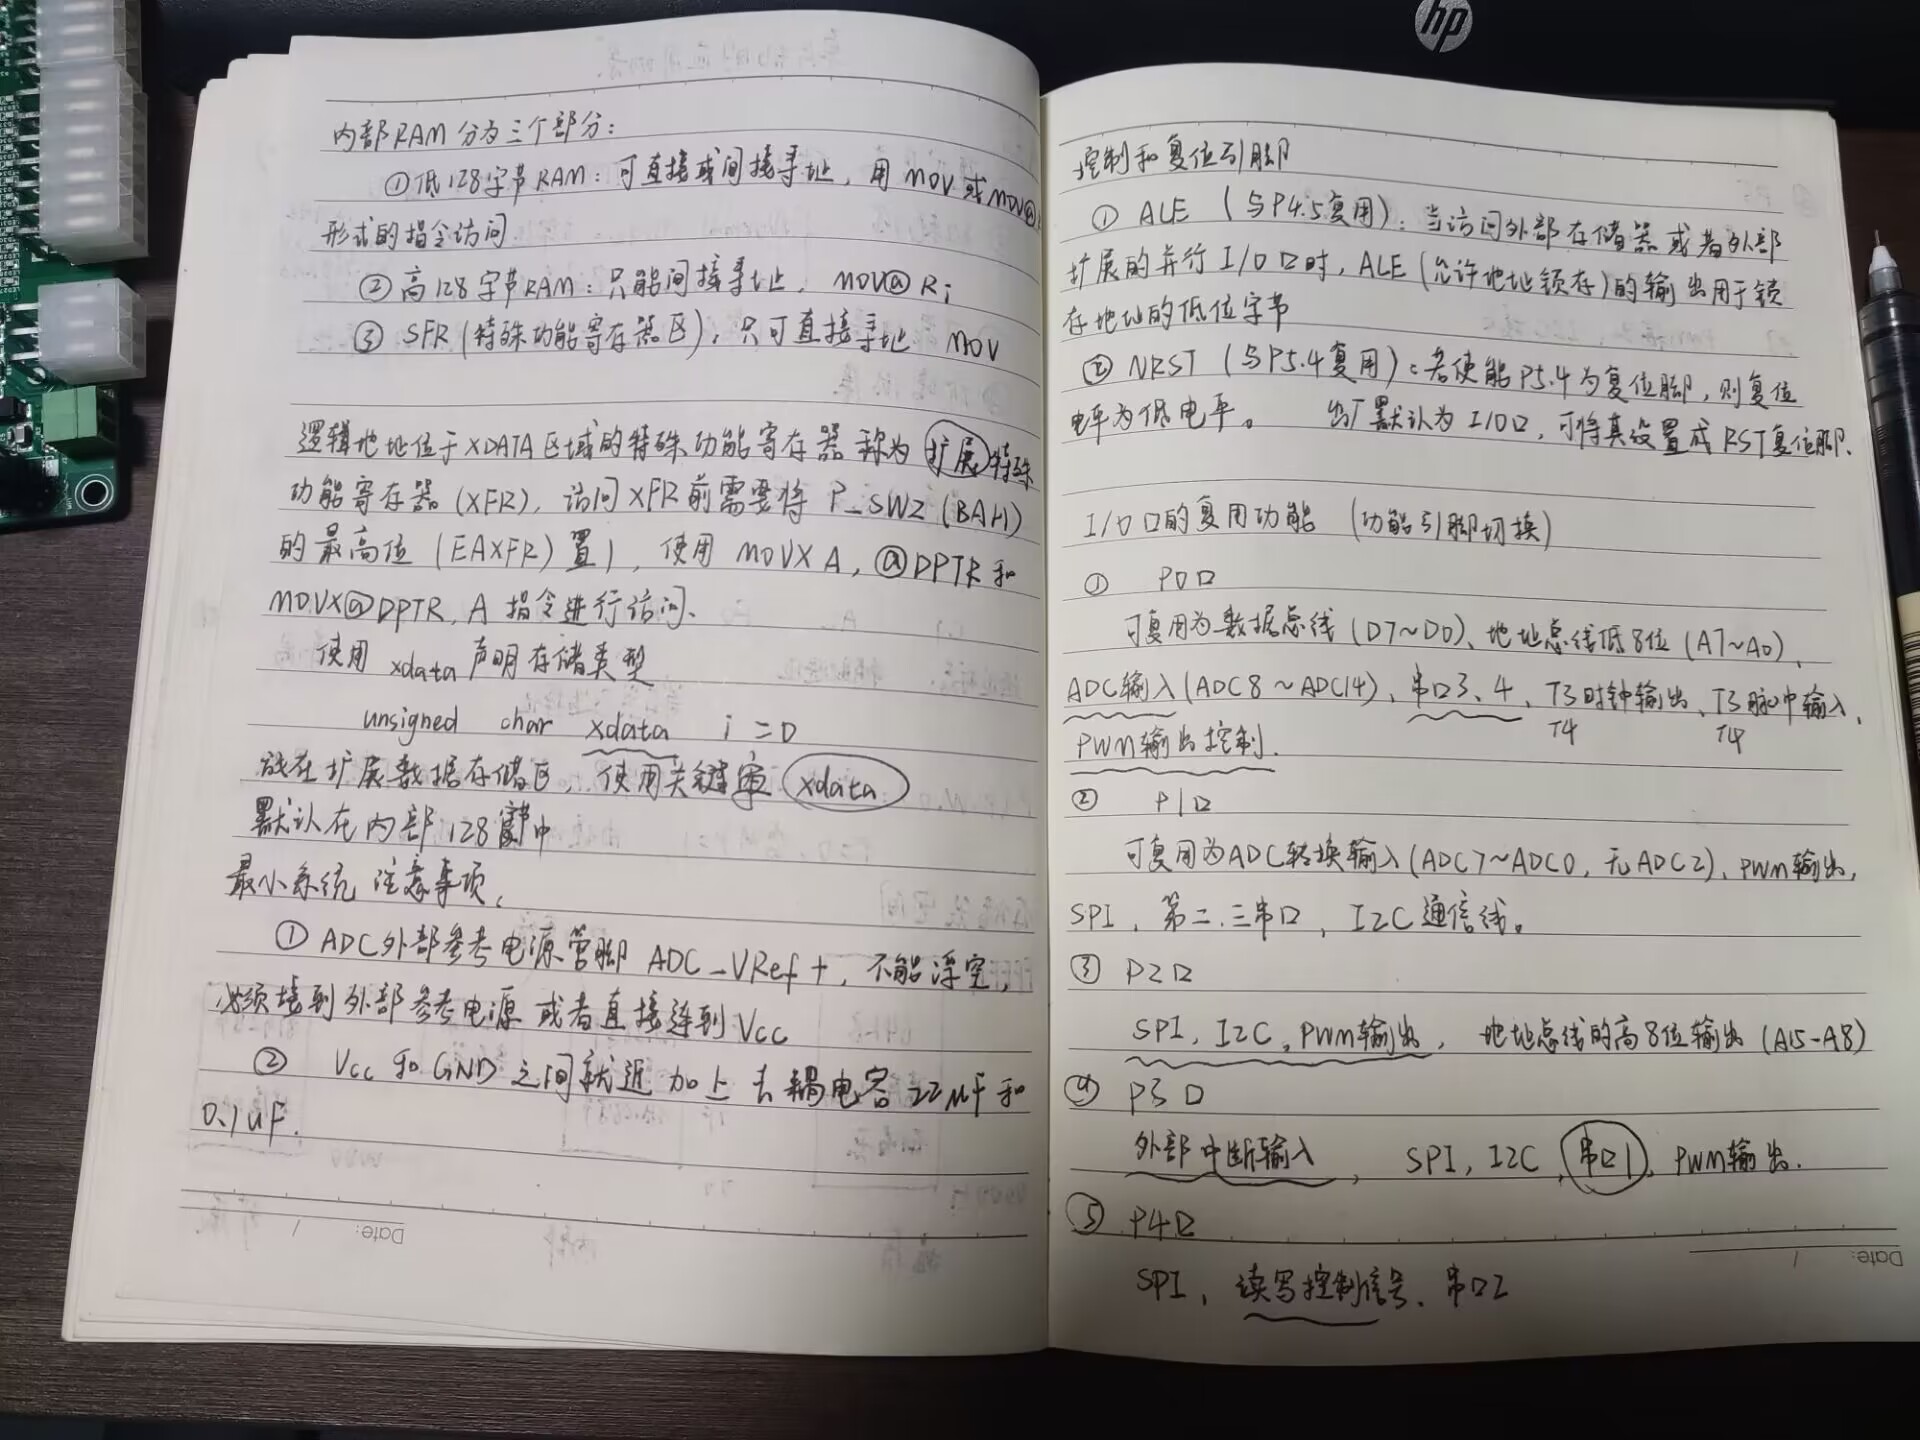 内部RAM分为三个部分：
①低128字节RAM：可直接或间接寻址，用MOV或MOV@R
形式的指令访问
②高128字节RAM：只能间接寻址，MOV@Ri
③ SFR(特殊功能寄存器区)，只可直接寻址 MOV
逻辑地址位于XDATA区域的特殊功能寄存器称为扩展特殊
功能寄存器(XFR)，访问XFR前需要将P_SW2(BAH)
的最高位(EAXFR)置1，使用MOVX A，@DPTR和
MOVX@DPTR，A指令进行访问、
使用xdata声明存储类型
unsigned char xdata i=0
放在扩展数据存储区，使用关键字xdata
默认在内部128字节中
最小系统注意事项，
①ADC外部参考电源管脚ADC_VRef+，不能浮空，
必须接到外部参考电源或者直接连到Vcc
② Vcc和GND之间就近加上去耦电容22μF和
0.1uF.
Date: /
hp
控制和复位引脚
① ALE (与P4.5复用)：当访问外部存储器或者外部
扩展的并行I/O口时，ALE(允许地址锁存)的输出用于锁
存地址的低位字节
② NRST (与P5.4复用)：若使能P5.4为复位脚，则复位
电平为低电平。 出厂默认为I/O口，可将其设置成RST复位脚、
I/O口的复用功能 (功能引脚切换)
① P0口
可复用为数据总线(D7~D0)、地址总线低8位(A7~A0)、
ADC输入(ADC8~ADC14)、串口3、4、T3时钟输出、T3脉冲输入，
T4 T4
PWM输出控制.
② P1口
可复用为ADC转换输入(ADC7~ADC0，无ADC2)、PWM输出，
SPI，第二.三串口，I2C通信线。
③ P2口
SPI，I2C，PWM输出，地址总线的高8位输出(A15-A8)
④ P3口
外部中断输入，SPI，I2C，串口1，PWM输出.
⑤ P4口
Date: /
SPI，读写控制信号、串口2